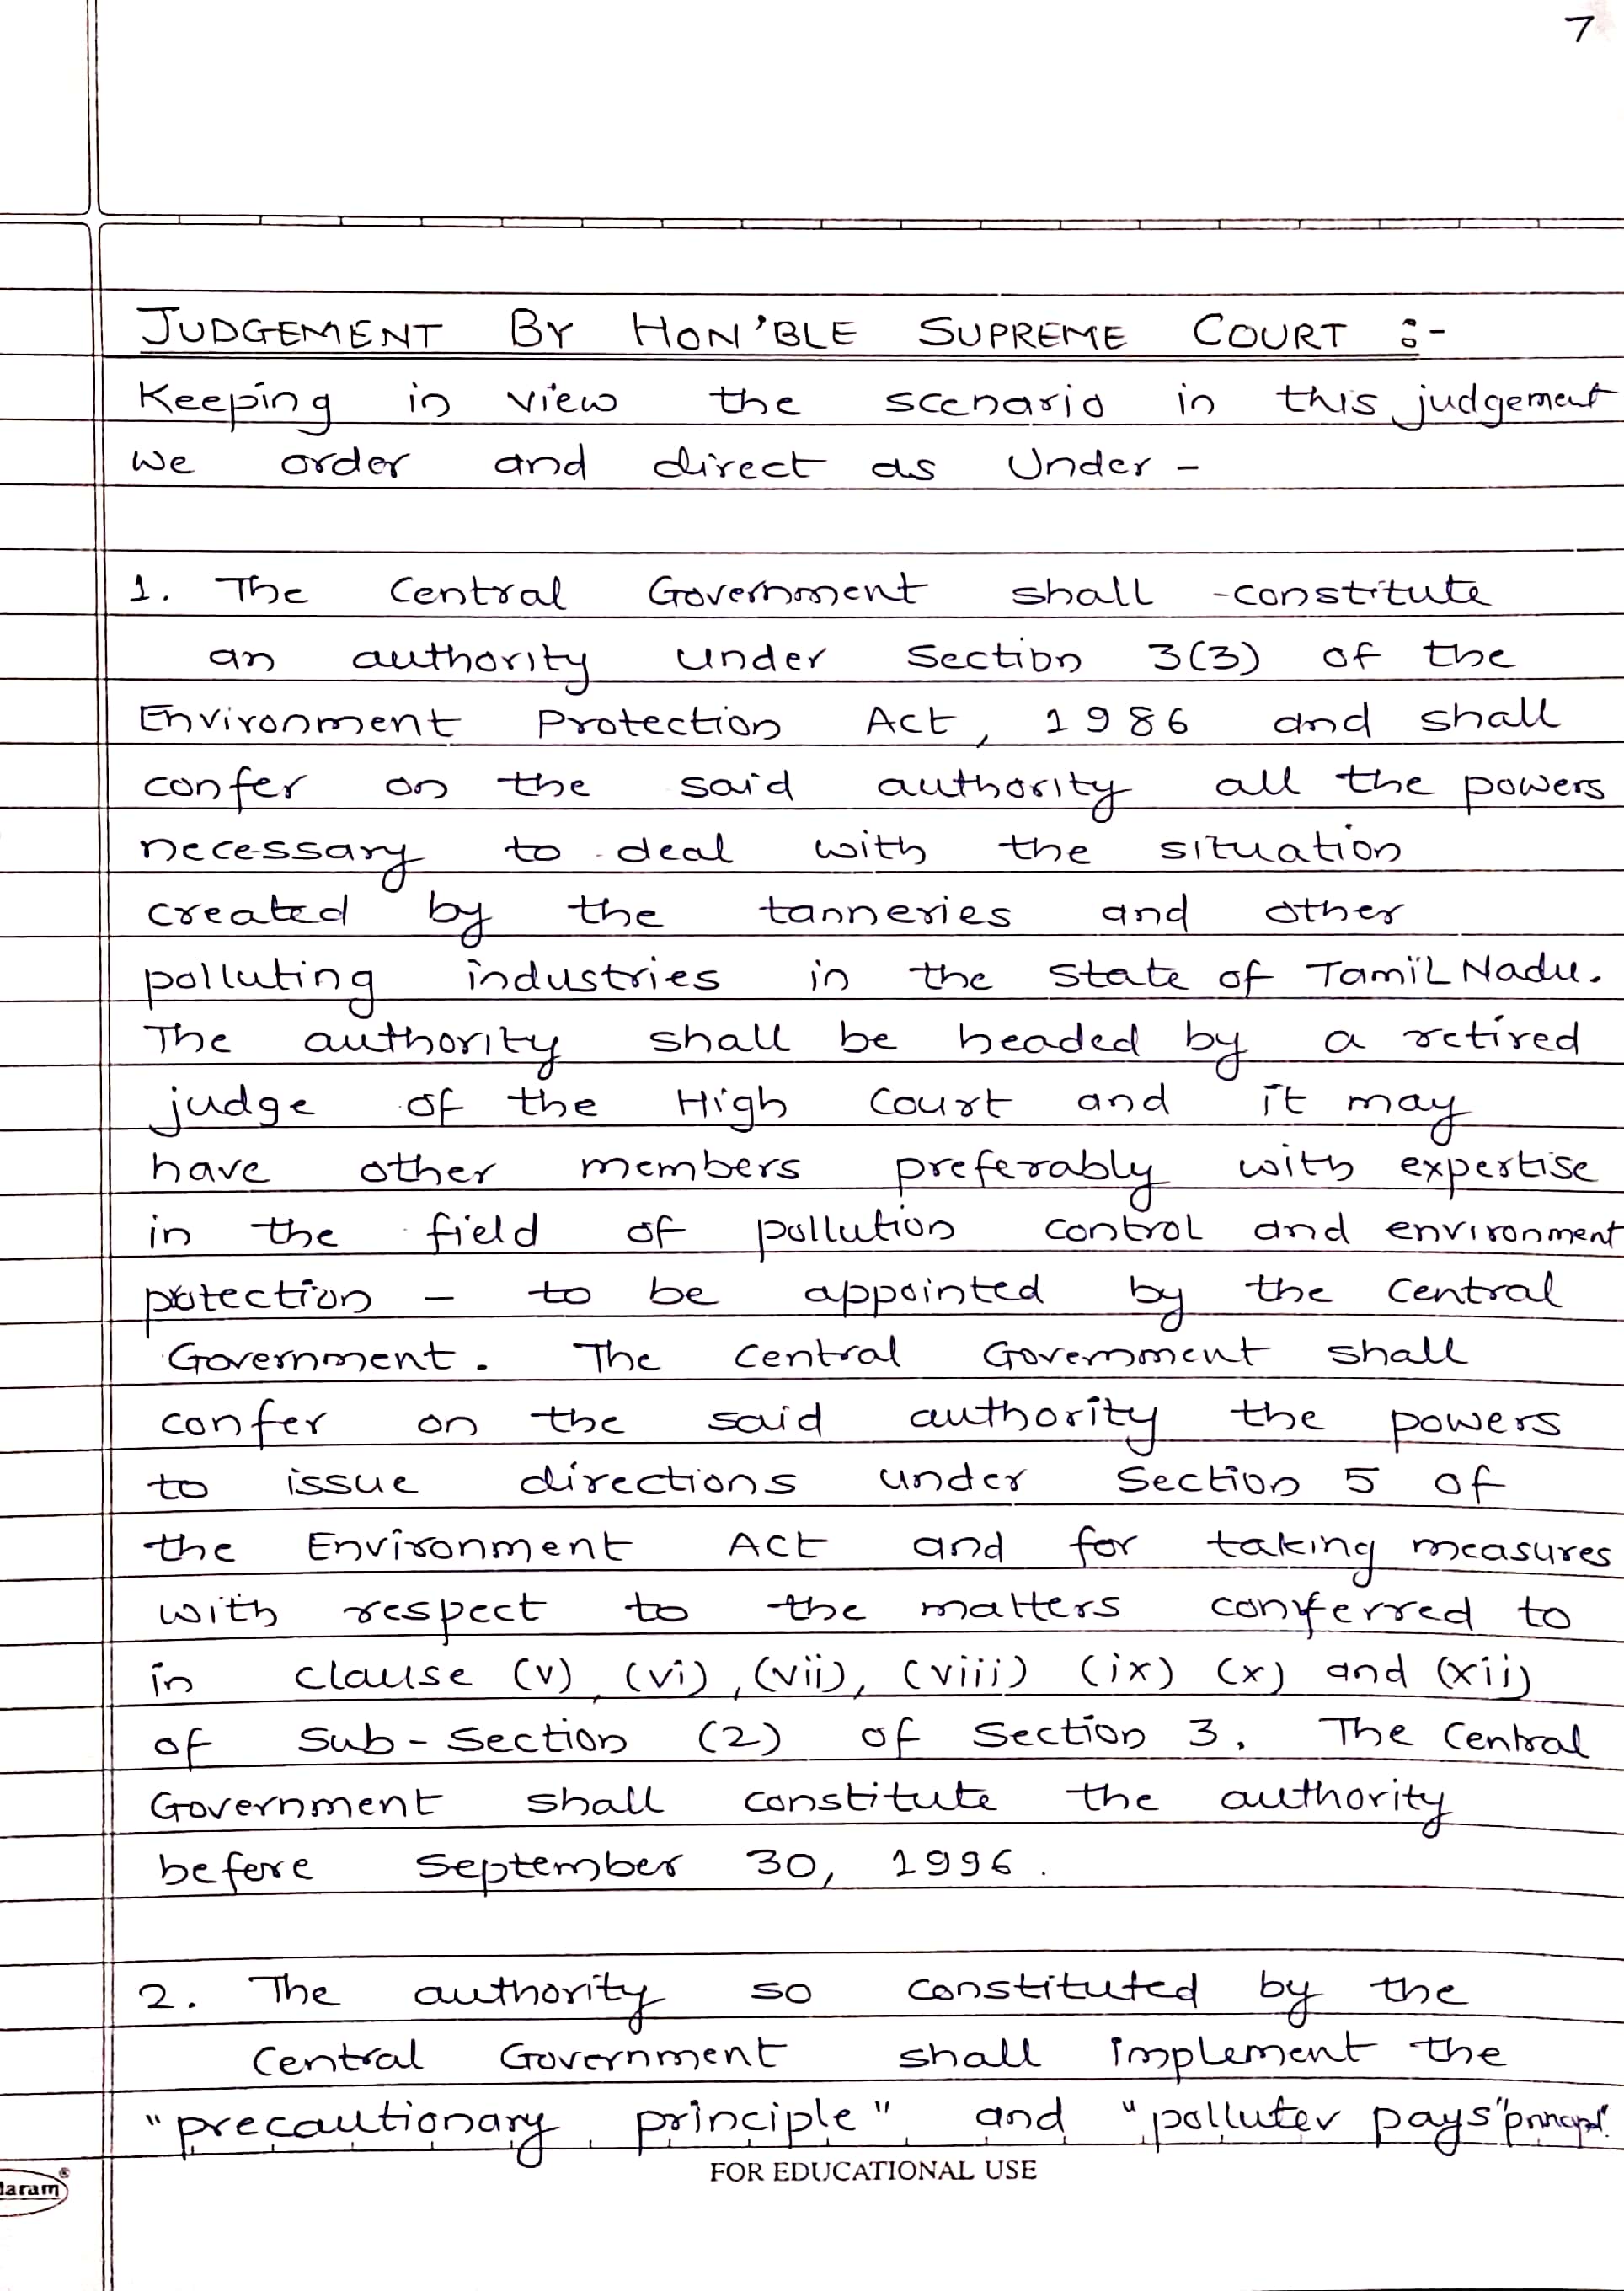 7
JUDGEMENT BY HON'BLE SUPREME COURT :-
Keeping in view the scenario in this judgement
we order and direct as Under -
1. The Central Government shall -constitute
an authority under Section 3(3) of the
Environment Protection Act, 1986 and shall
confer on the said authority all the powers
necessary to deal with the situation
created by the tanneries and other
polluting industries in the State of Tamil Nadu.
The authority shall be headed by a retired
judge of the High Court and it may
have other members preferably with expertise
in the field of pollution control and environment
protection - to be appointed by the Central
Government. The Central Government shall
confer on the said authority the powers
to issue directions under Section 5 of
the Environment Act and for taking measures
with respect to the matters conferred to
in clause (v), (vi), (vii), (viii) (ix) (x) and (xii)
of Sub-Section (2) of Section 3. The Central
Government shall constitute the authority
before September 30, 1996.
2. The authority so constituted by the
Central Government shall implement the
"precautionary principle" and "polluter pays"
FOR EDUCATIONAL USE